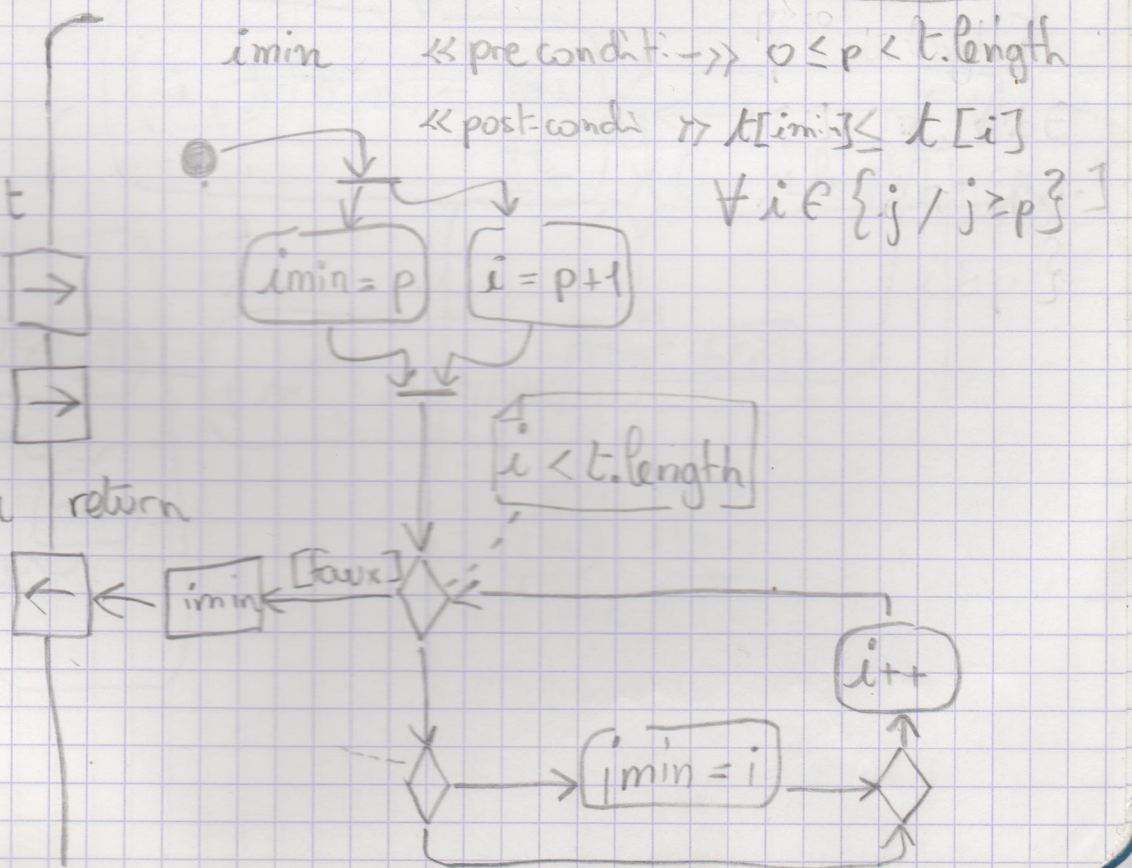 imin << precondition->> 0 ≤ p < t.length
<< post-condi >> t[imin] ≤ t[i]
∀ i ∈ {j / j ≥ p}
t
imin = p
i = p+1
i < t.length
return
[faux]
imin
i++
imin = i